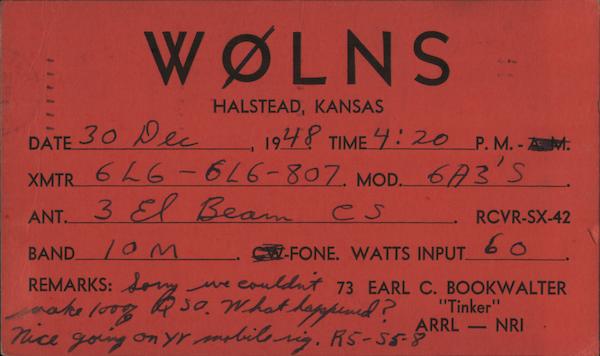 WØLNS
HALSTEAD, KANSAS
DATE 30 Dec, 1948 TIME 4:20 P. M. - A. M.
XMTR 6L6 - 6L6 - 807. MOD. 6A3'S.
ANT. 3 El Beam CS. RCVR-SX-42
BAND 10 M. CW-FONE. WATTS INPUT 60.
REMARKS: Sorry we couldn't 73 EARL C. BOOKWALTER
make 100% QSO. What happened? "Tinker"
Nice going on yr mobile rig. R5-S5-8 ARRL — NRI